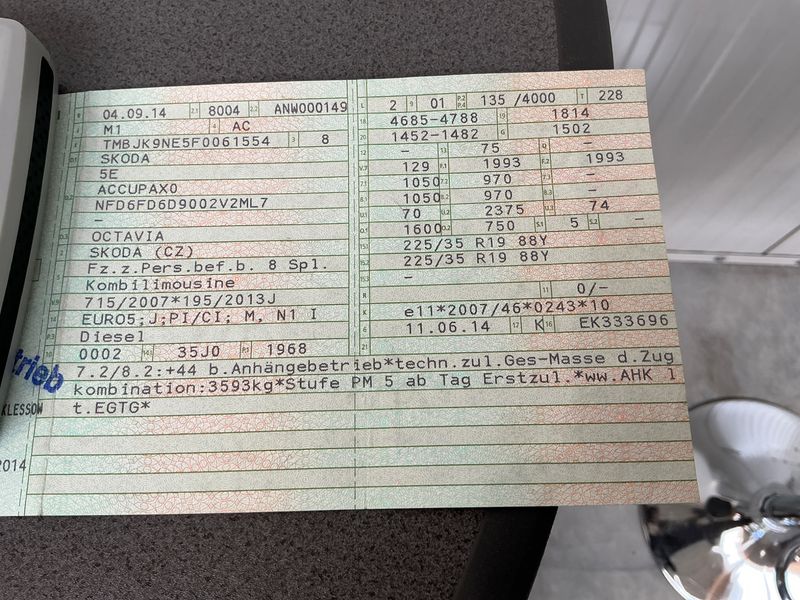 B 04.09.14 2.1 8004 2.2 ANW000149
J M1 4 AC
E TMBJK9NE5F0061554 3 8
SKODA
5E
ACCUPAX0
NFD6FD6D9002V2ML7
–
D.3 OCTAVIA
2 SKODA (CZ)
5 Fz.z.Pers.bef.b. 8 Spl.
Kombilimousine
V.9 715/2007*195/2013J
14 EURO5;J;PI/CI; M, N1 I
Diesel
10 0002 14.1 35J0 P.1 1968
L 2 9 01 P.2 P.4 135 /4000 T 228
18 4685–4788 19 1814
20 1452–1482 G 1502
12 – 13 75 Q –
V.7 129 F.1 1993 F.2 1993
7.1 1050 7.2 970 7.3 –
8.1 1050 8.2 970 8.3 –
U.1 70 U.2 2375 U.3 74
O.1 1600 O.2 750 S.1 5 S.2 –
15.1 225/35 R19 88Y
15.2 225/35 R19 88Y
15.3 –
R 11 0/–
K e11*2007/46*0243*10
6 11.06.14 17 K 16 EK333696
21
7.2/8.2:+44 b.Anhängebetrieb*techn.zul.Ges-Masse d.Zug
kombination:3593kg*Stufe PM 5 ab Tag Erstzul.*ww.AHK l
t.EGTG*
trieb
KLESSOW
2014